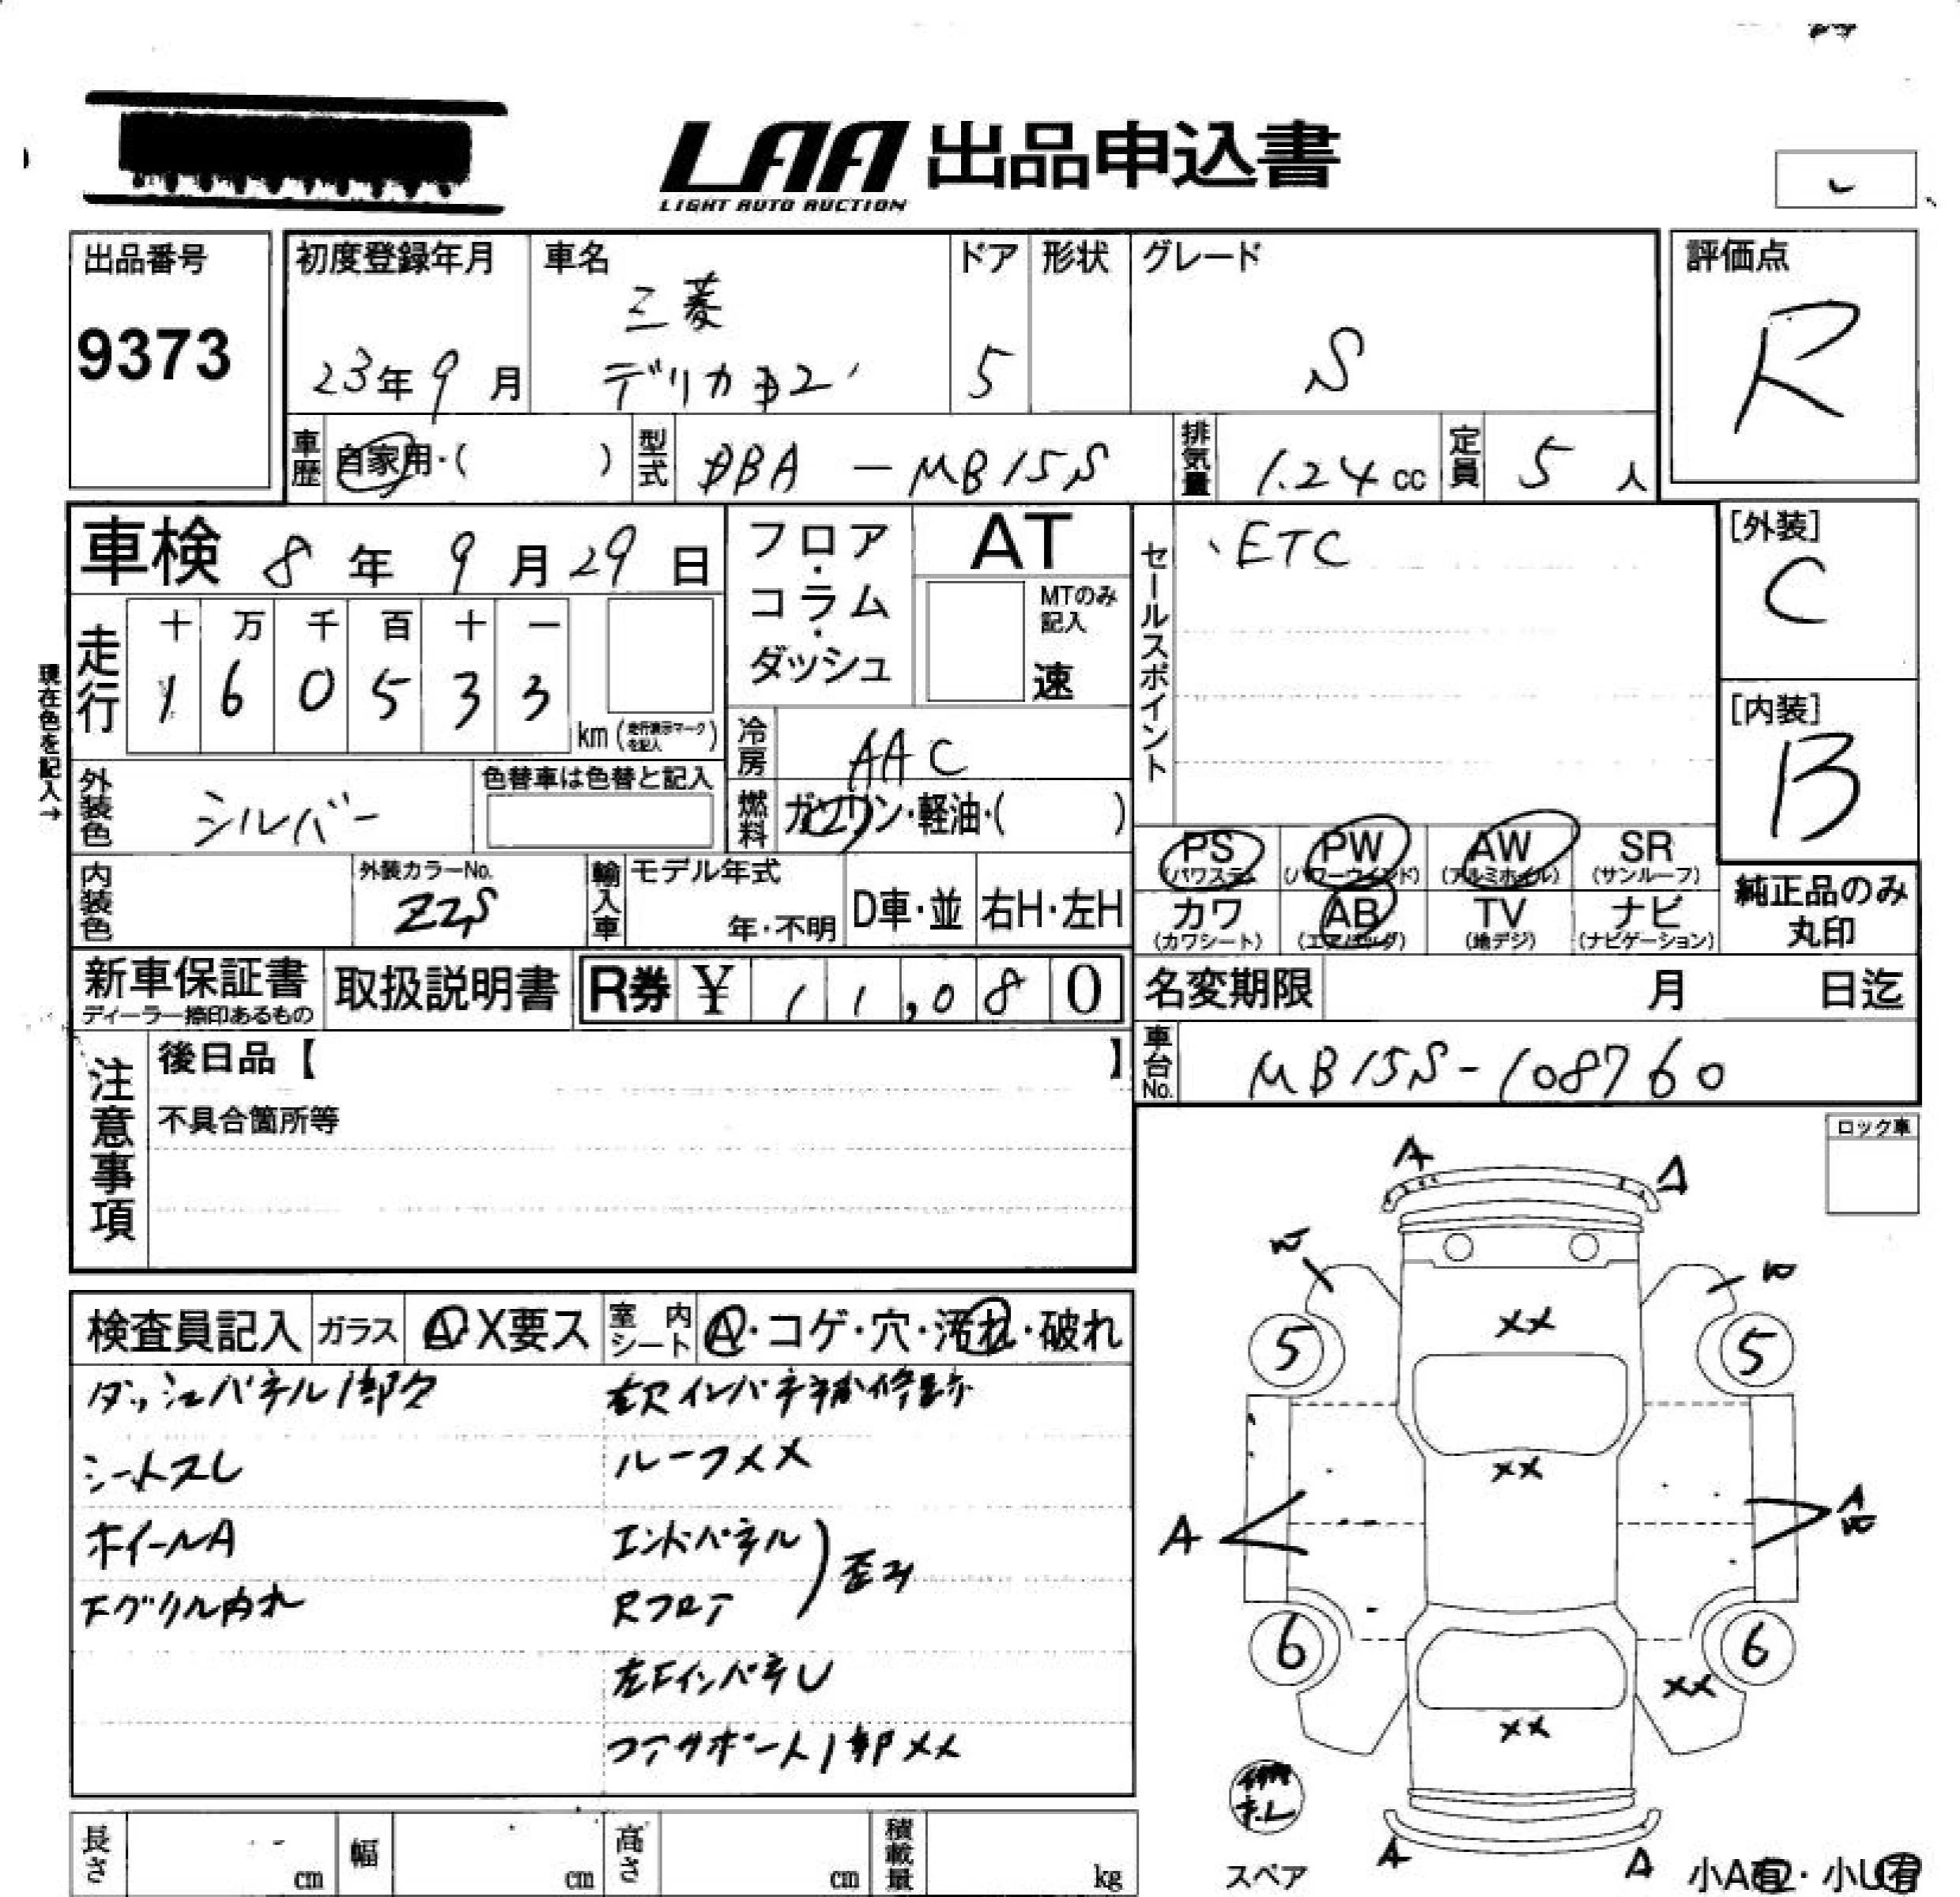 LAA 出品申込書
LIGHT AUTO AUCTION
出品番号
9373
初度登録年月
23年9月
車名
三菱
デリカD2
ドア
5
形状
グレード
S
評価点
R
車歴
自家用・( )
型式
DBA-MB15S
排気量
1.24cc
定員
5人
車検 8年9月29日
フロア・コラム・ダッシュ
AT
MTのみ記入
速
セールスポイント
、ETC
[外装]
C
[内装]
B
現在色を記入→
走行
十 万 千 百 十 一
1 6 0 5 3 3
km (走行表示マークを記入)
冷房
AAC
燃料
ガソリン・軽油・( )
外装色
シルバー
色替車は色替と記入
PS
(パワステ)
PW
(パワーウインド)
AW
(アルミホイル)
SR
(サンルーフ)
カワ
(カワシート)
AB
(エアバッグ)
TV
(地デジ)
ナビ
(ナビゲーション)
純正品のみ
丸印
内装色
外装カラーNo.
Z2S
輸入車
モデル年式
年・不明
D車・並
右H・左H
新車保証書
ディーラー捺印あるもの
取扱説明書
R券 ¥ 11,080
名変期限 月 日迄
車台No.
MB15S-108760
注意事項
後日品【 】
不具合箇所等
ロック車
検査員記入
ガラス
A・X要ス
室内シート
A・コゲ・穴・汚れ・破れ
ダッシュパネル1部欠
シートスレ
ホイールA
Fグリル内れ
ルーフXX
エンドパネル
Rフロア
歪み
左FインパネU
コアサポート1部XX
A
A
W
W
XX
5
5
XX
A
A
W
6
6
XX
XX
A
A
スペア
小A有・小U有
長さ cm
幅 cm
高さ cm
積載量 kg